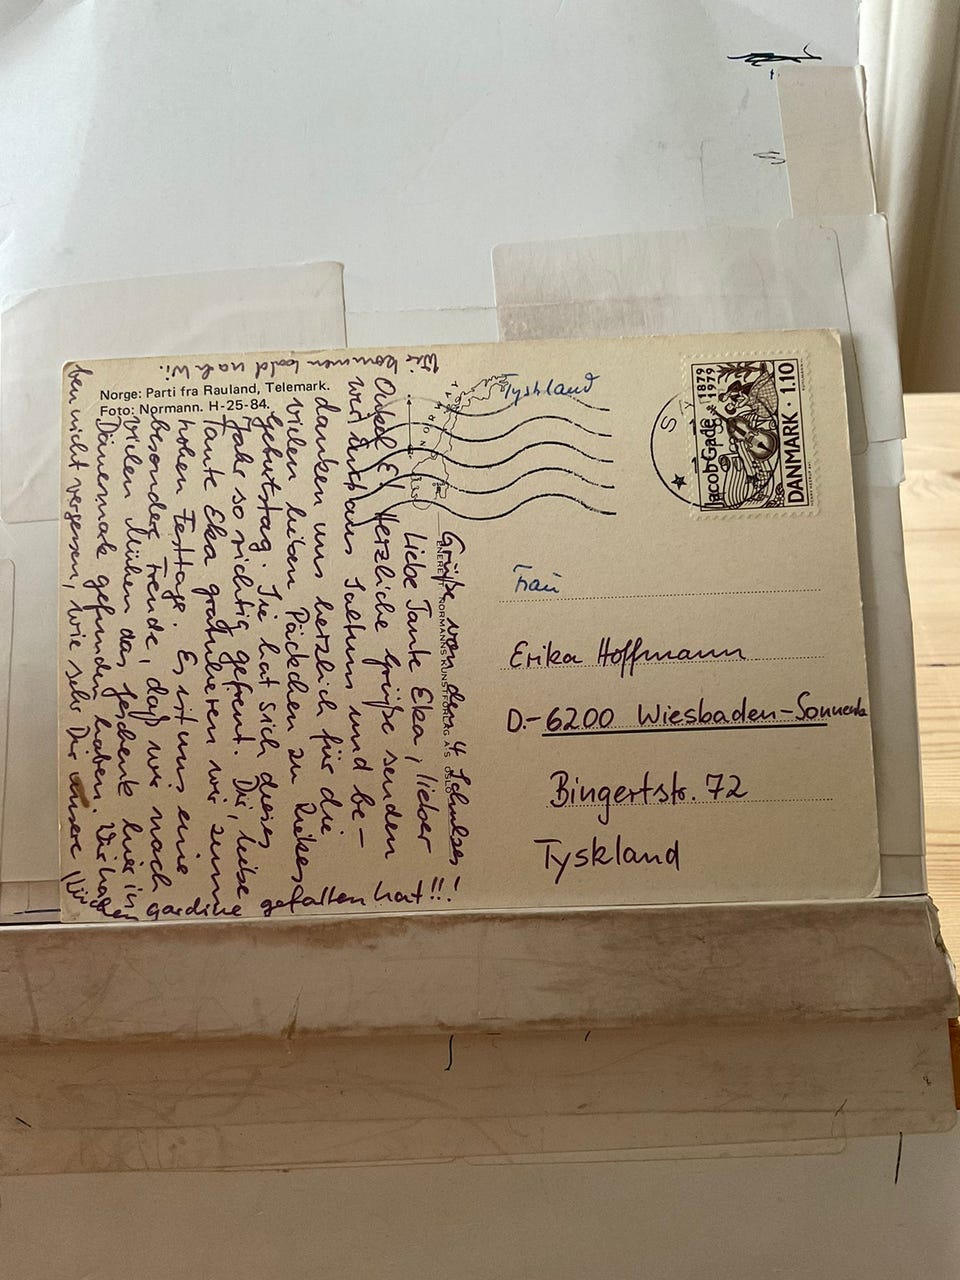 Norge: Parti fra Rauland, Telemark.
Foto: Normann. H-25-84.
Wir kommen bald nach Wi.
Grüße von den 4 Schulses!
Liebe Tante Eka, lieber
Onkel E! Herzliche Grüße senden
wir Euch aus Saltum und be-
danken uns herzlich für die
vielen lieben Päckchen zu Rikes
Geburtstag. Sie hat sich dieses
Jahr so richtig gefreut. Dir, liebe
Tante Eka gratulieren wir zum
hohen Festtage. Es ist uns eine
besondere Freude, daß wir nach
vielen Mühen das Geschenk hier in
Dänemark gefunden haben. Wir ha
ben nicht vergessen, wie sehr Dir unsere
gardine gefallen hat!!!
ENERETT NORMANNS KUNSTFORLAG A/S OSLO
Tyskland
Jacob Gade 1879 1979
DANMARK · 1.10
Frau
Erika Hoffmann
D.-6200 Wiesbaden-Sonnenb
Bingertstr. 72
Tyskland